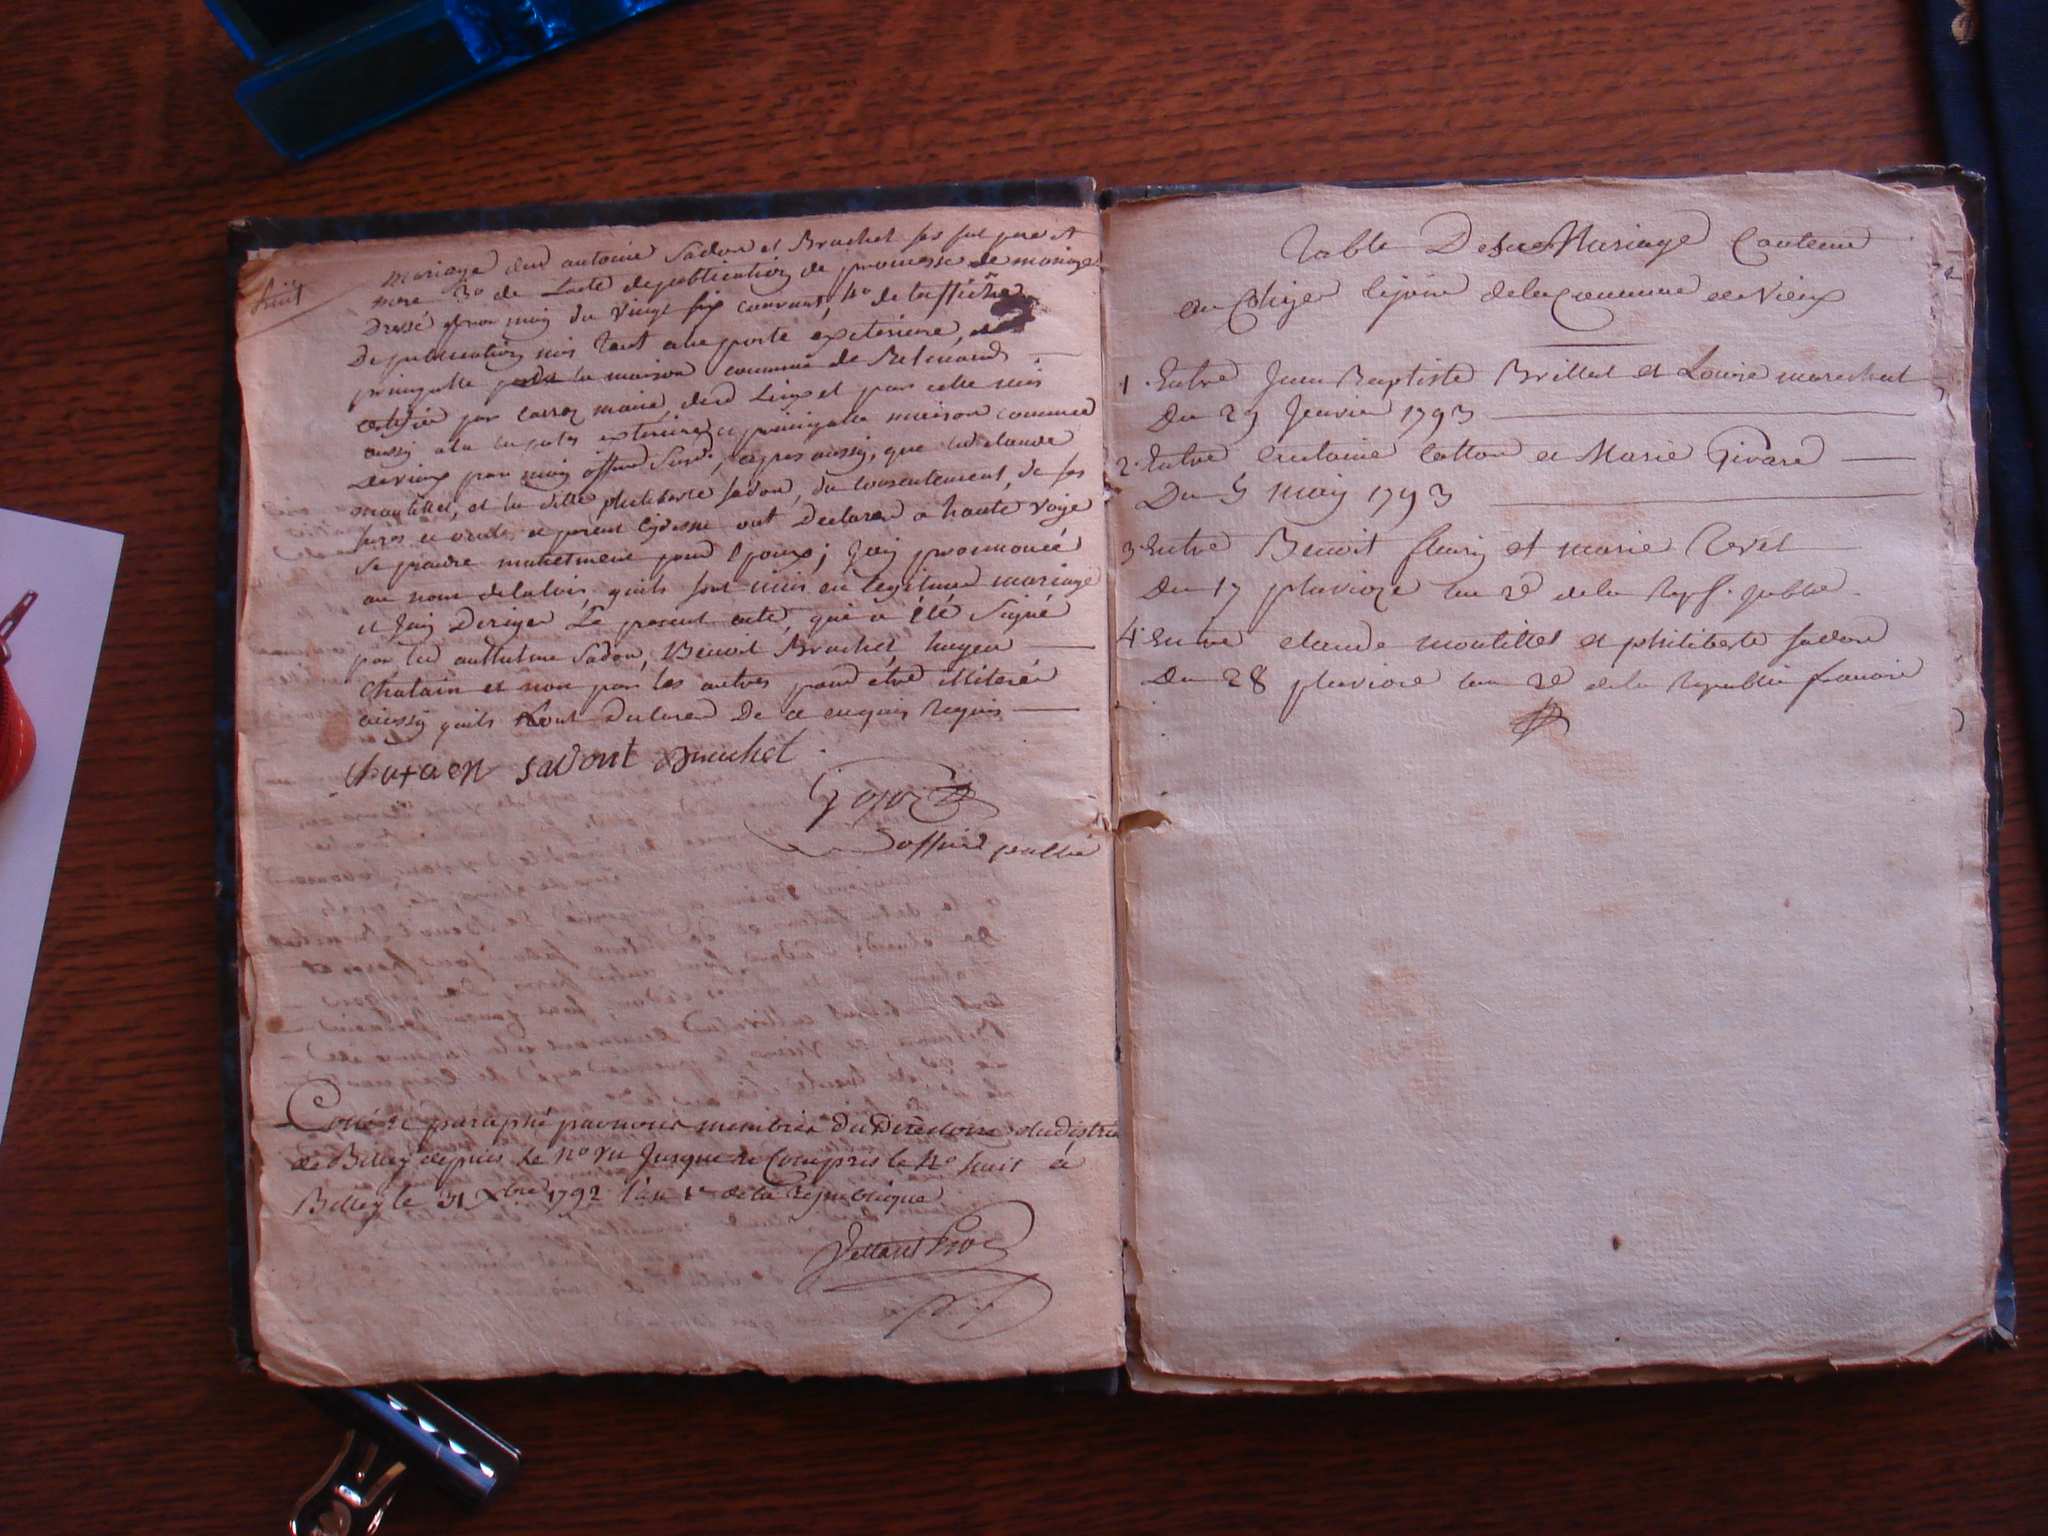 huit
mariage dud antoine Sadon et Bruchet ses pere et
mere 3o de Lacte depublication de promesse de mariage
Dressé par moy du vingt six courant, 4o de laffiche
De publication mis tant a la porte exterieure et
principalle de la maison commune de Belmond
certifié par maire dud Lieu et par celui mis
aussy a la porte exterieure et principalle maison commune
devieux par moy officier Susd. apres aussy, que led claude
montillet, et la ditte philiberte Sadon, du consentement, de ses
freres et parent cydessus ont Declaré a haute voye
se prendre mutuelment pour Epoux; J'ay prononcé
au nom delaloy, quils sont unis en legitime mariage
et J'ay Dirigée Le present acte, qui a été Signé
par led Sadon, Benoit Bruchet,
Chatain et non par les autres pour etre illiterée
ainssy quils L'ont Declaré De ce enquis Requis
Chataen sadont Bruchet
officié public
Cotté et paraphé par nous membres du Directoire du distric
de Belley depuis le no un Jusque et Compris le No huit à
Belley le 31 Xbre 1792 l'an 1er de la République
Table Des Mariage Contenue
au Cahyer cyjoin delaCommune de Vieux
1. Entre Jean Baptiste Brillat et Louise marechal
Du 29 Janvier 1793
2. Entre Antoine Catton et Marie Girard
Du 5 may 1793
3. Entre Benoit fleury et marie Revel
Du 17 pluvioze lan 2e de la Rep. publie
4. Entre claude montillet et philiberte Sadon
Du 28 pluviose lan 2e de la Republi francoise